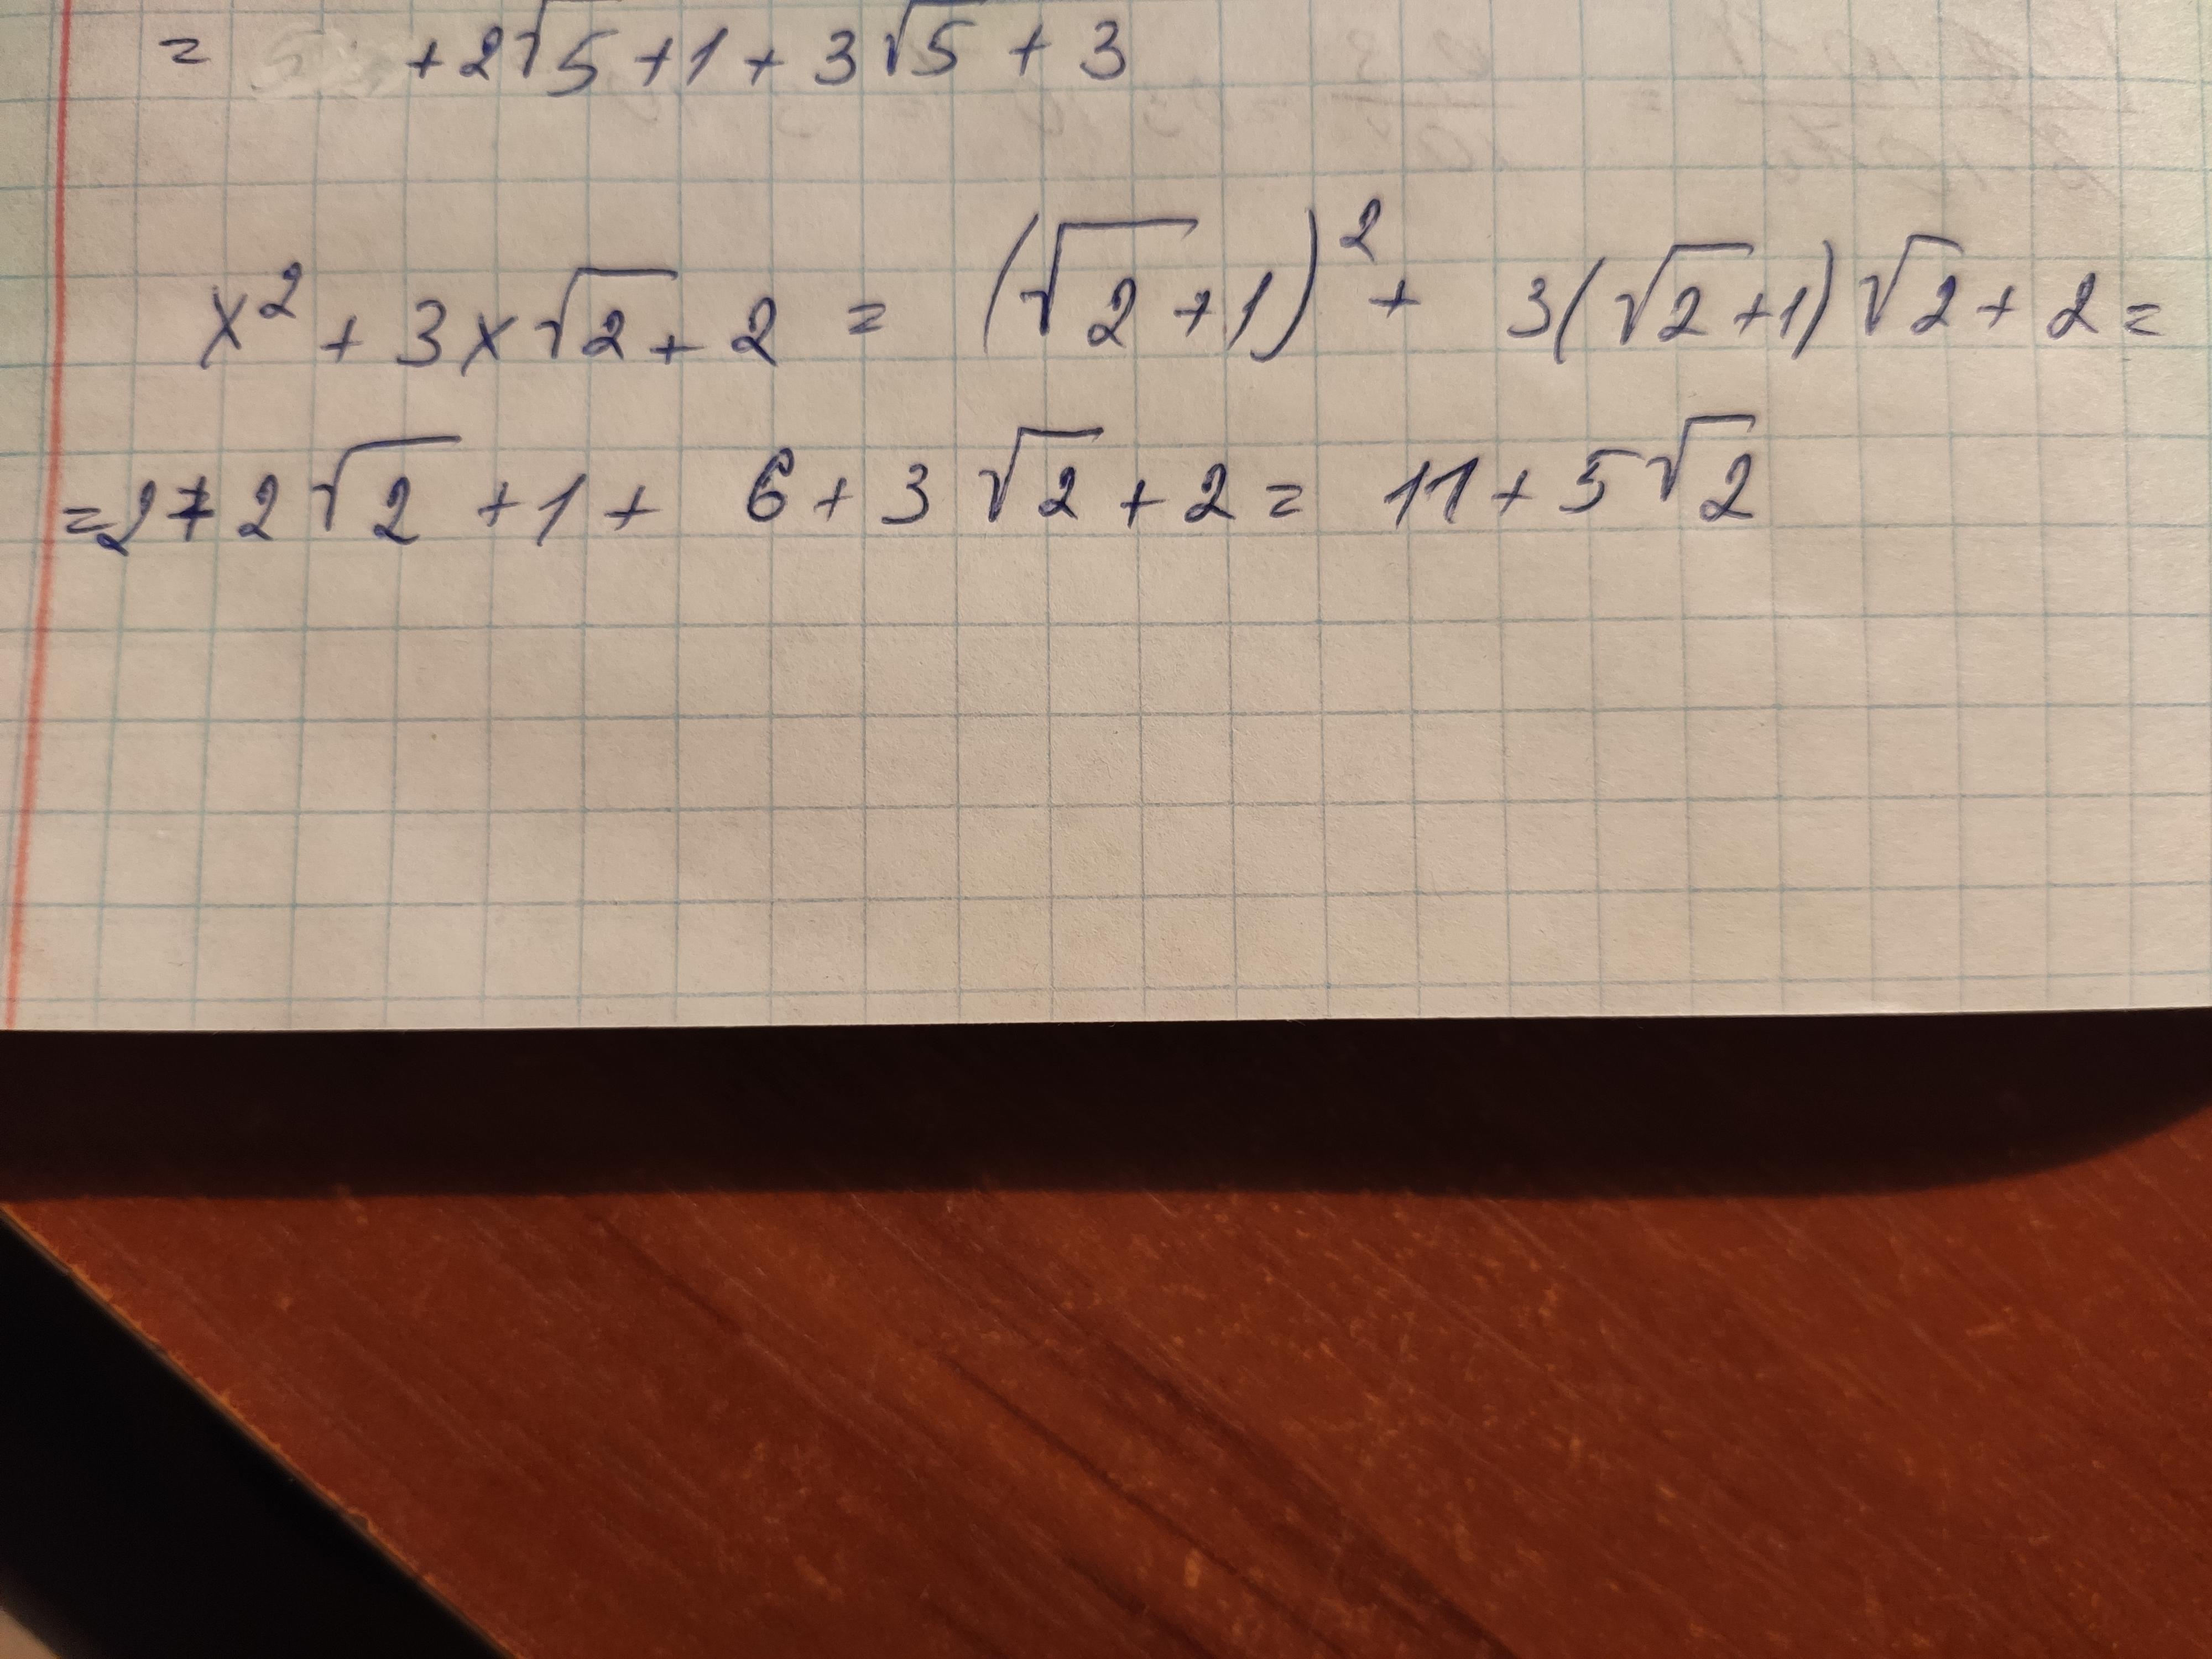 = + 2√5 + 1 + 3√5 + 3
x² + 3x√2 + 2 = (√2 + 1)² + 3(√2 + 1)√2 + 2 =
= 2 + 2√2 + 1 + 6 + 3√2 + 2 = 11 + 5√2